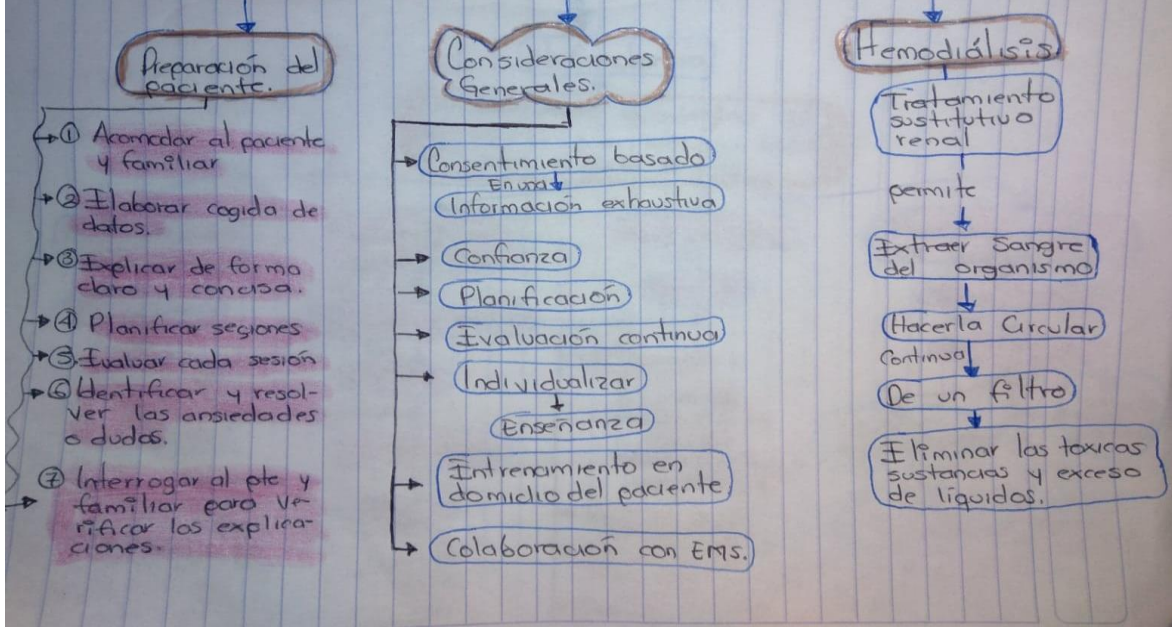 Preparación del
paciente.
① Acomodar al paciente
y familiar
② Elaborar cogida de
datos.
③ Explicar de forma
claro y concisa.
④ Planificar segiones
⑤. Evaluar cada sesión
⑥ Identificar y resol-
ver las ansiedades
o dudas.
⑦ Interrogar al pte y
familiar para ve-
rificar las explica-
ciones.
Consideraciones
Generales.
Consentimiento basado
En una
Información exhaustiva
Confianza
Planificación
Evaluación continua
Individualizar
Enseñanza
Entrenamiento en
domicilio del paciente
Colaboración con EMS.
Hemodiálisis
Tratamiento
sustitutivo
renal
permite
Extraer Sangre
del organismo
Hacerla Circular
Continua
De un filtro
Eliminar las toxicas
sustancias y exceso
de líquidos.